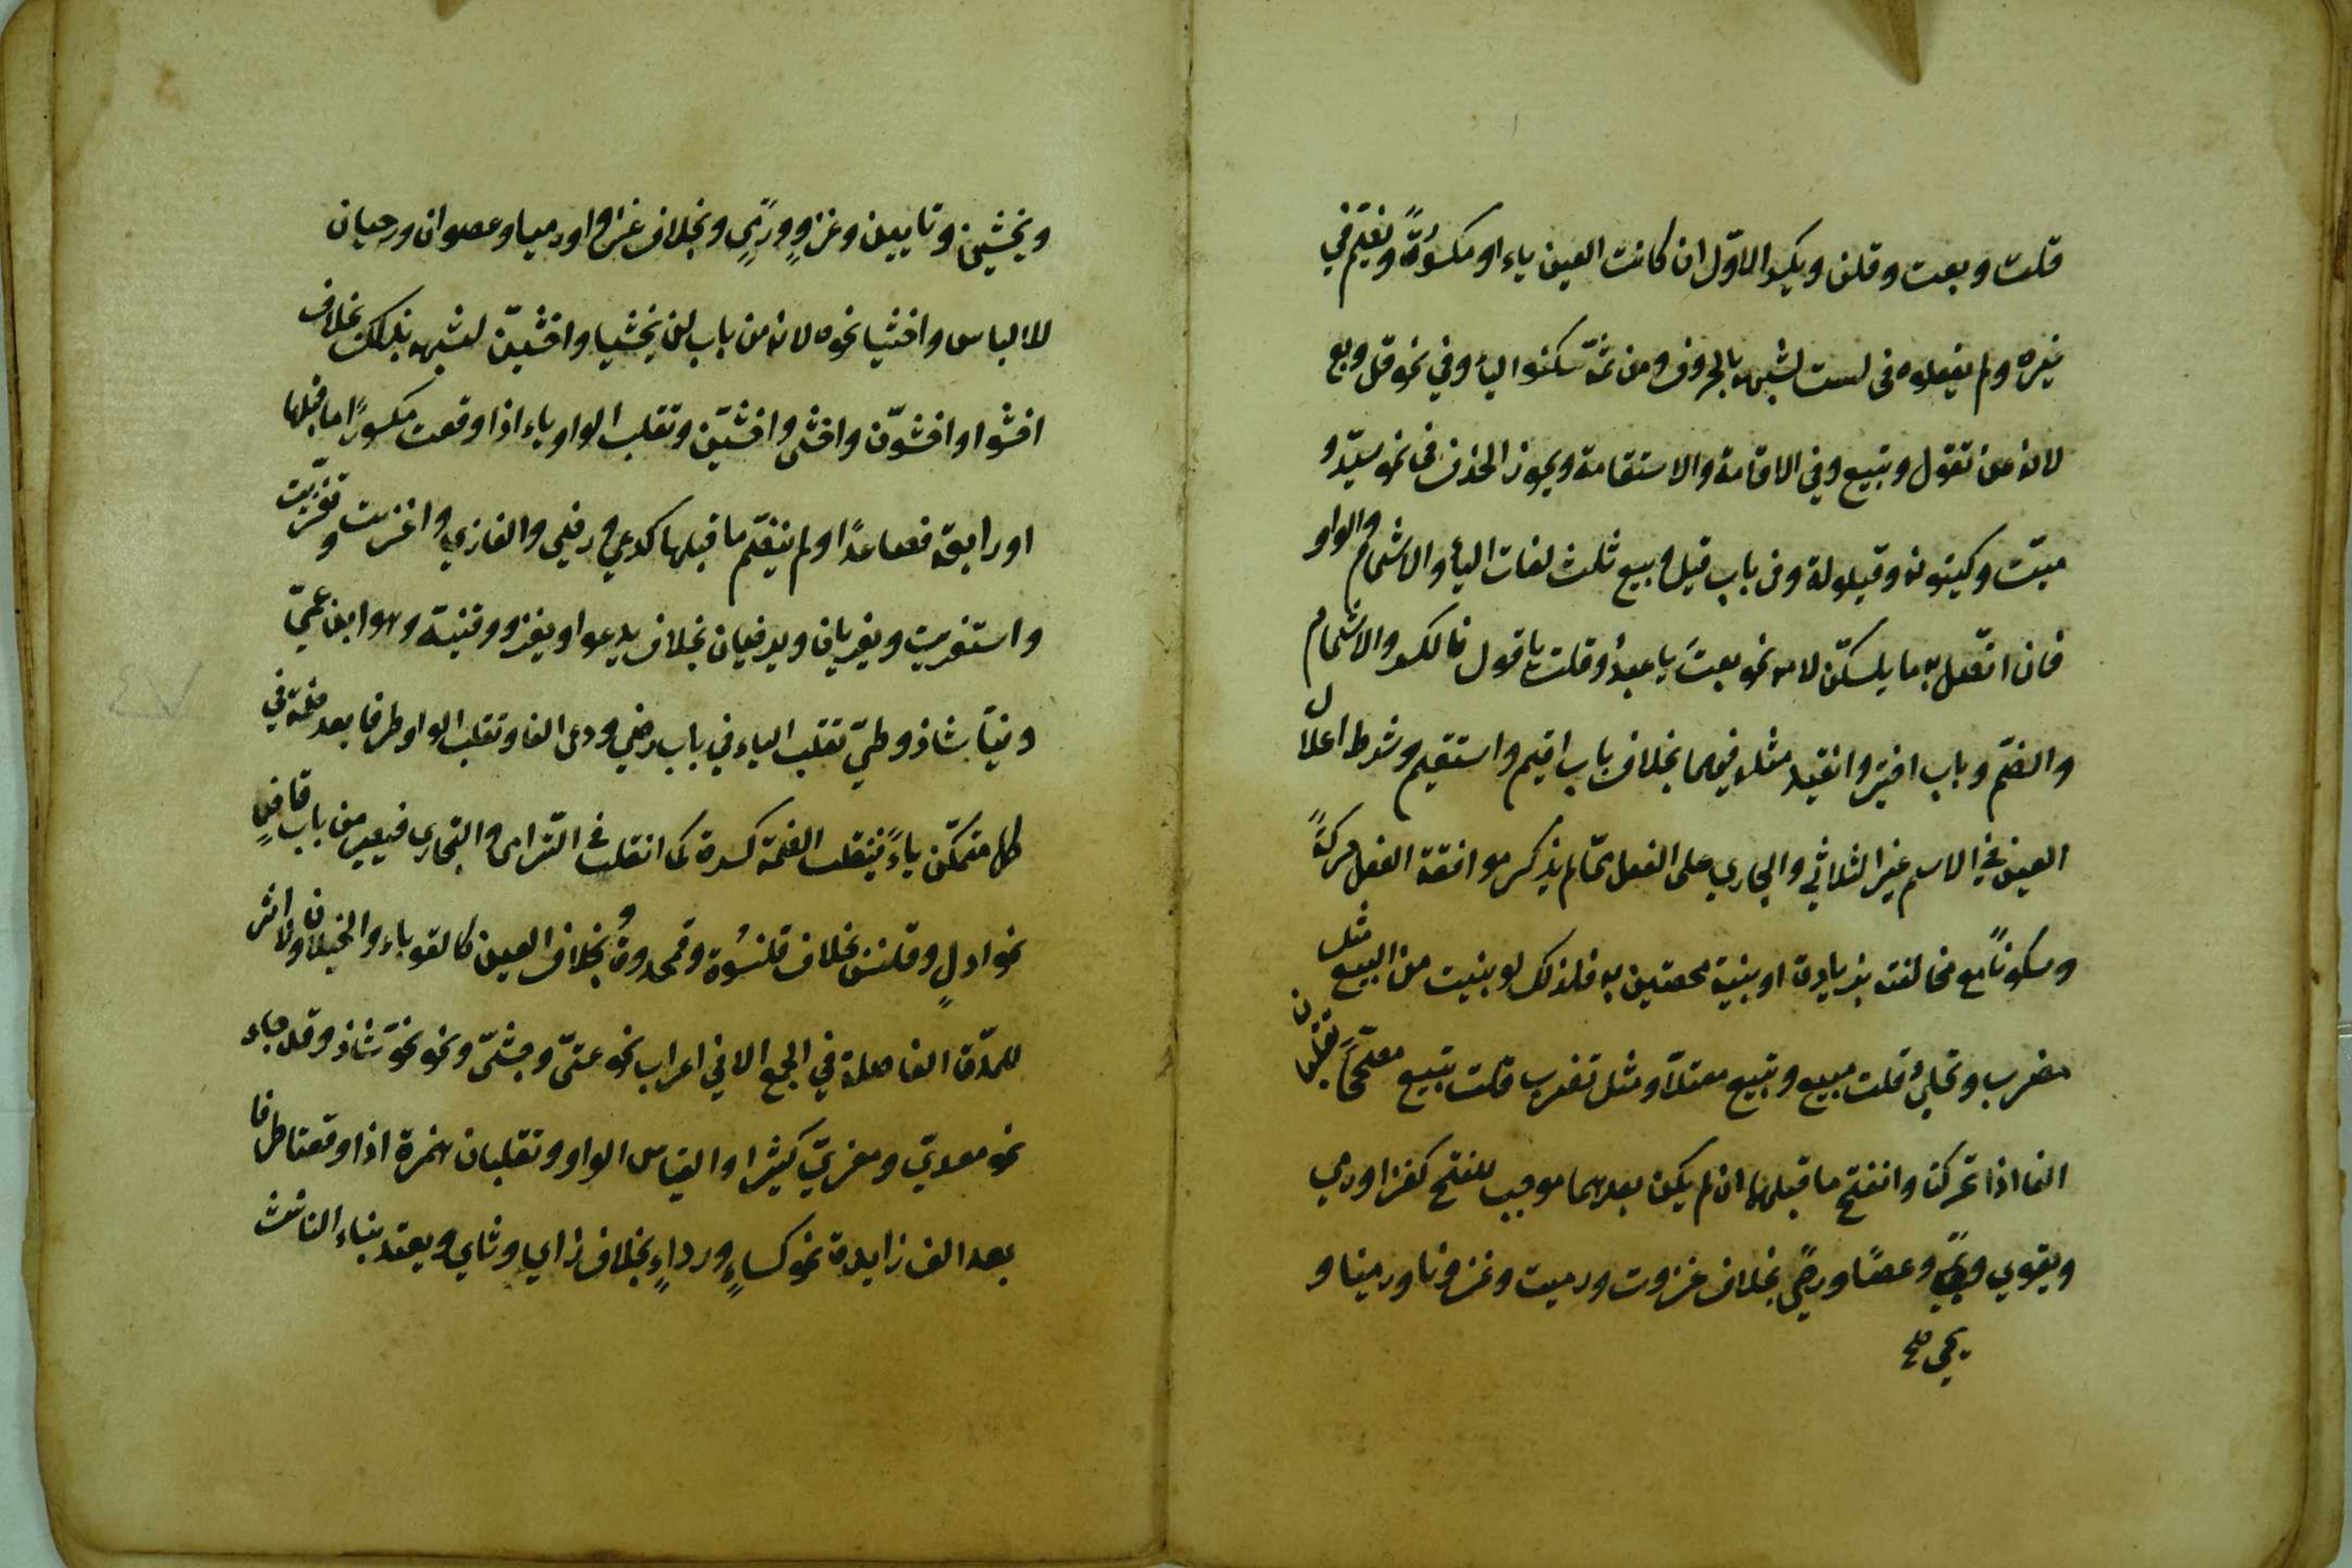 قلت وبعت وقلن ويكسر الاول ان كانت العين ياء او مكسورةً ويضم في
غيره ولم يفعلوه في لست لشبهه بالحروف ومن ثمّ سكنوا الياء وفي نحو قل وبع
لانه عن تقول وتبيع وفي الاقامة والاستقامة ويجوز الحذف في نحو سيّد و
ميّت وكينونة وقيلولة وفي باب قيل وبيع ثلث لغات الياء والاشمام والواو
فان اتّصل به ما يسكّن لامه نحو بعتَ يا عبدُ وقلت يا قول فالكسر والاشمام
والضمّ وباب اختير وانقيد مثله فيهما بخلاف باب اقيم واستقيم وشرط اعلال
العين في الاسم غير الثلاثي والجاري على الفعل ممّا لم يذكر موافقة الفعل حركةً
وسكوناً مع مخالفته بزيادة او بنية مخصتين به فلذلك لو بنيت من البيع مثل
مضرب وتحلئ قلت مبيع وتبيع معتلاً ومثل تضرب قلت تبيع مصحّحاً تقلبان
الفا اذا تحركتا وانفتح ما قبلهما ان لم يكن بعدهما موجب للفتح كغزا ورمي
ويقوي ويحيي وعصًا ورحًى بخلاف غزوت ورميت وغزونا ورمينا و
يخشين وتابين وغزوٍ ورميٍ وبخلاف غزوا ورميا وعصوان ورحيان
للالباس واخشيا نحوه لانه من باب لن يخشيا واخشينّ لشبهه بذلك بخلاف
اخشوا واخشونّ واخشي واخشينّ وتقلب الواو ياء اذا وقعت مكسورًا ما قبلها
او رابعة فصاعدًا ولم ينضم ما قبلها كدعي ورضي والغازي واغزيت وتغزيت
واستغزيت ويغزيان ويرضيان بخلاف يدعو ويغزو وقنية وهو ابن عمّي
دنيًا شاذ وطيّ تقلب الياء في باب رضي ودعي الفا وتقلب الواو طرفا بعد ضمة في
كل متمكّن ياءً فينقلب الضمة كسرة كما انقلبت في الترامي والتجاري فيصير من باب قاضٍ
نحو ادلٍ وقلنسٍ بخلاف قلنسُوة وقمحدوة وبخلاف العين كالقوباء والخيلاء ولا اثر
للمدّة الفاصلة في الجمع الا في اعراب نحو عتيّ وجثيّ ونحو نحوّ شاذ وقد جاء
نحو معديّ ومغزيّ كثيرا والقياس الواو وتقلبان همزة اذا وقعتا طرفا
بعد الف زايدة نحو كساءٍ ورداءٍ بخلاف زاي وثاي ويعتد بتاء التانيث